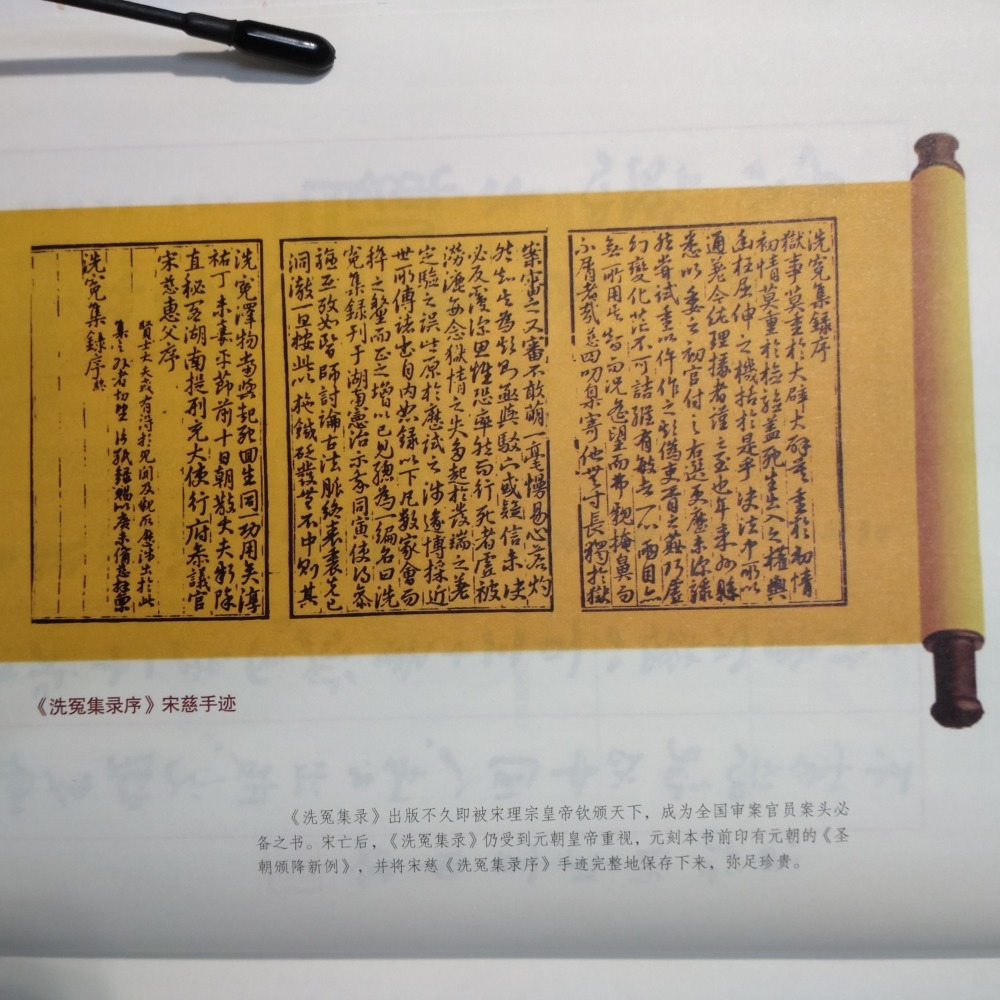 洗冤集録序
獄事莫重於大辟大辟莫重於初情
初情莫重於檢驗蓋死生出入之權輿
幽枉屈伸之機括於是乎決法中所以
通差今佐理掾者謹之至也年来州縣
悉以委之初官付之右選更歷未深驟
然嘗試重以仵作之欺偽吏胥之姦巧虛
幻變化茫不可詰縱有敏者一心兩目亦
無所用其智而況遙望而弗親掩鼻而
不屑者哉慈四叨臬寄他無寸長獨於獄
案審之又審不敢萌一毫慢易心若灼
然知其為欺則亟與駁下或疑信未決
必反覆深思惟恐率然而行死者虛被
澇漉每念獄情之失多起於發端之差
定驗之誤皆原於歷試之淺遂博採近
世所傳諸書自内恕録以下凡數家會而
粹之釐而正之增以己見總為一編名曰洗
冤集録刊于湖南憲治示我同寅使得參
驗互攷如醫師討論古法脈絡表裏先已
洞澈一旦按此以施鍼砭發無不中則其
洗冤澤物當與起死回生同一功用矣淳
祐丁未嘉平節前十日朝散大夫新除
直秘閣湖南提刑充大使行府参議官
宋慈惠父序
賢士大夫或有得於見聞及親所歷涉出於此
集之外者切望片紙録賜以廣未備慈拜稟
洗冤集録序
《洗冤集录序》宋慈手迹
《洗冤集录》出版不久即被宋理宗皇帝钦颁天下，成为全国审案官员案头必
备之书。宋亡后，《洗冤集录》仍受到元朝皇帝重视，元刻本书前印有元朝的《圣
朝颁降新例》，并将宋慈《洗冤集录序》手迹完整地保存下来，弥足珍贵。